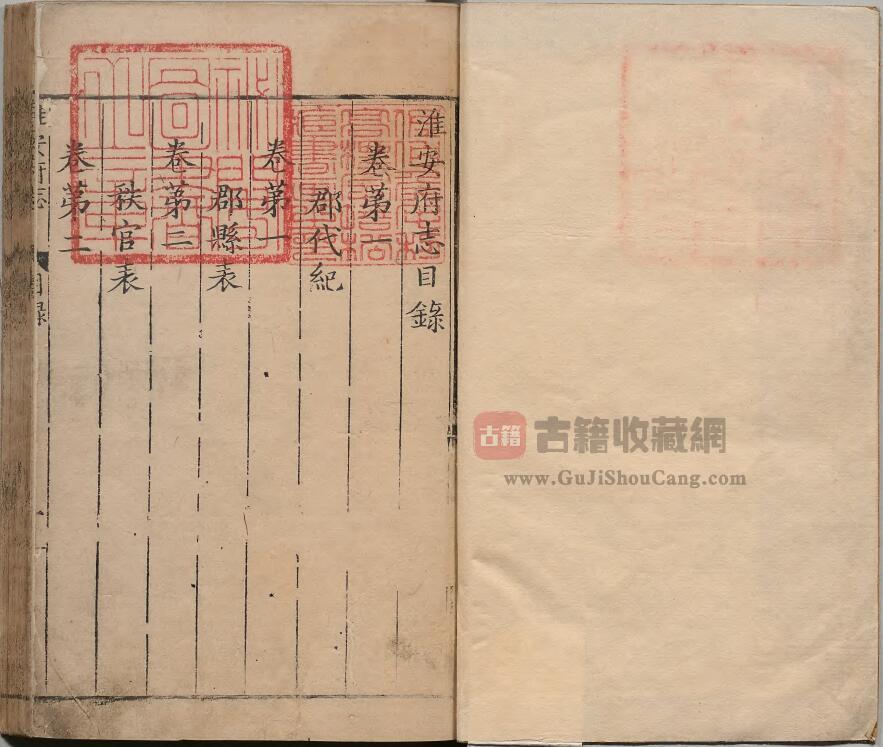 淮安府志目錄
卷第一
郡代紀
卷第一
郡縣表
卷第二
秩官表
卷第二
淮安府志 目錄
古籍
古籍收藏網
www.GuJiShouCang.com